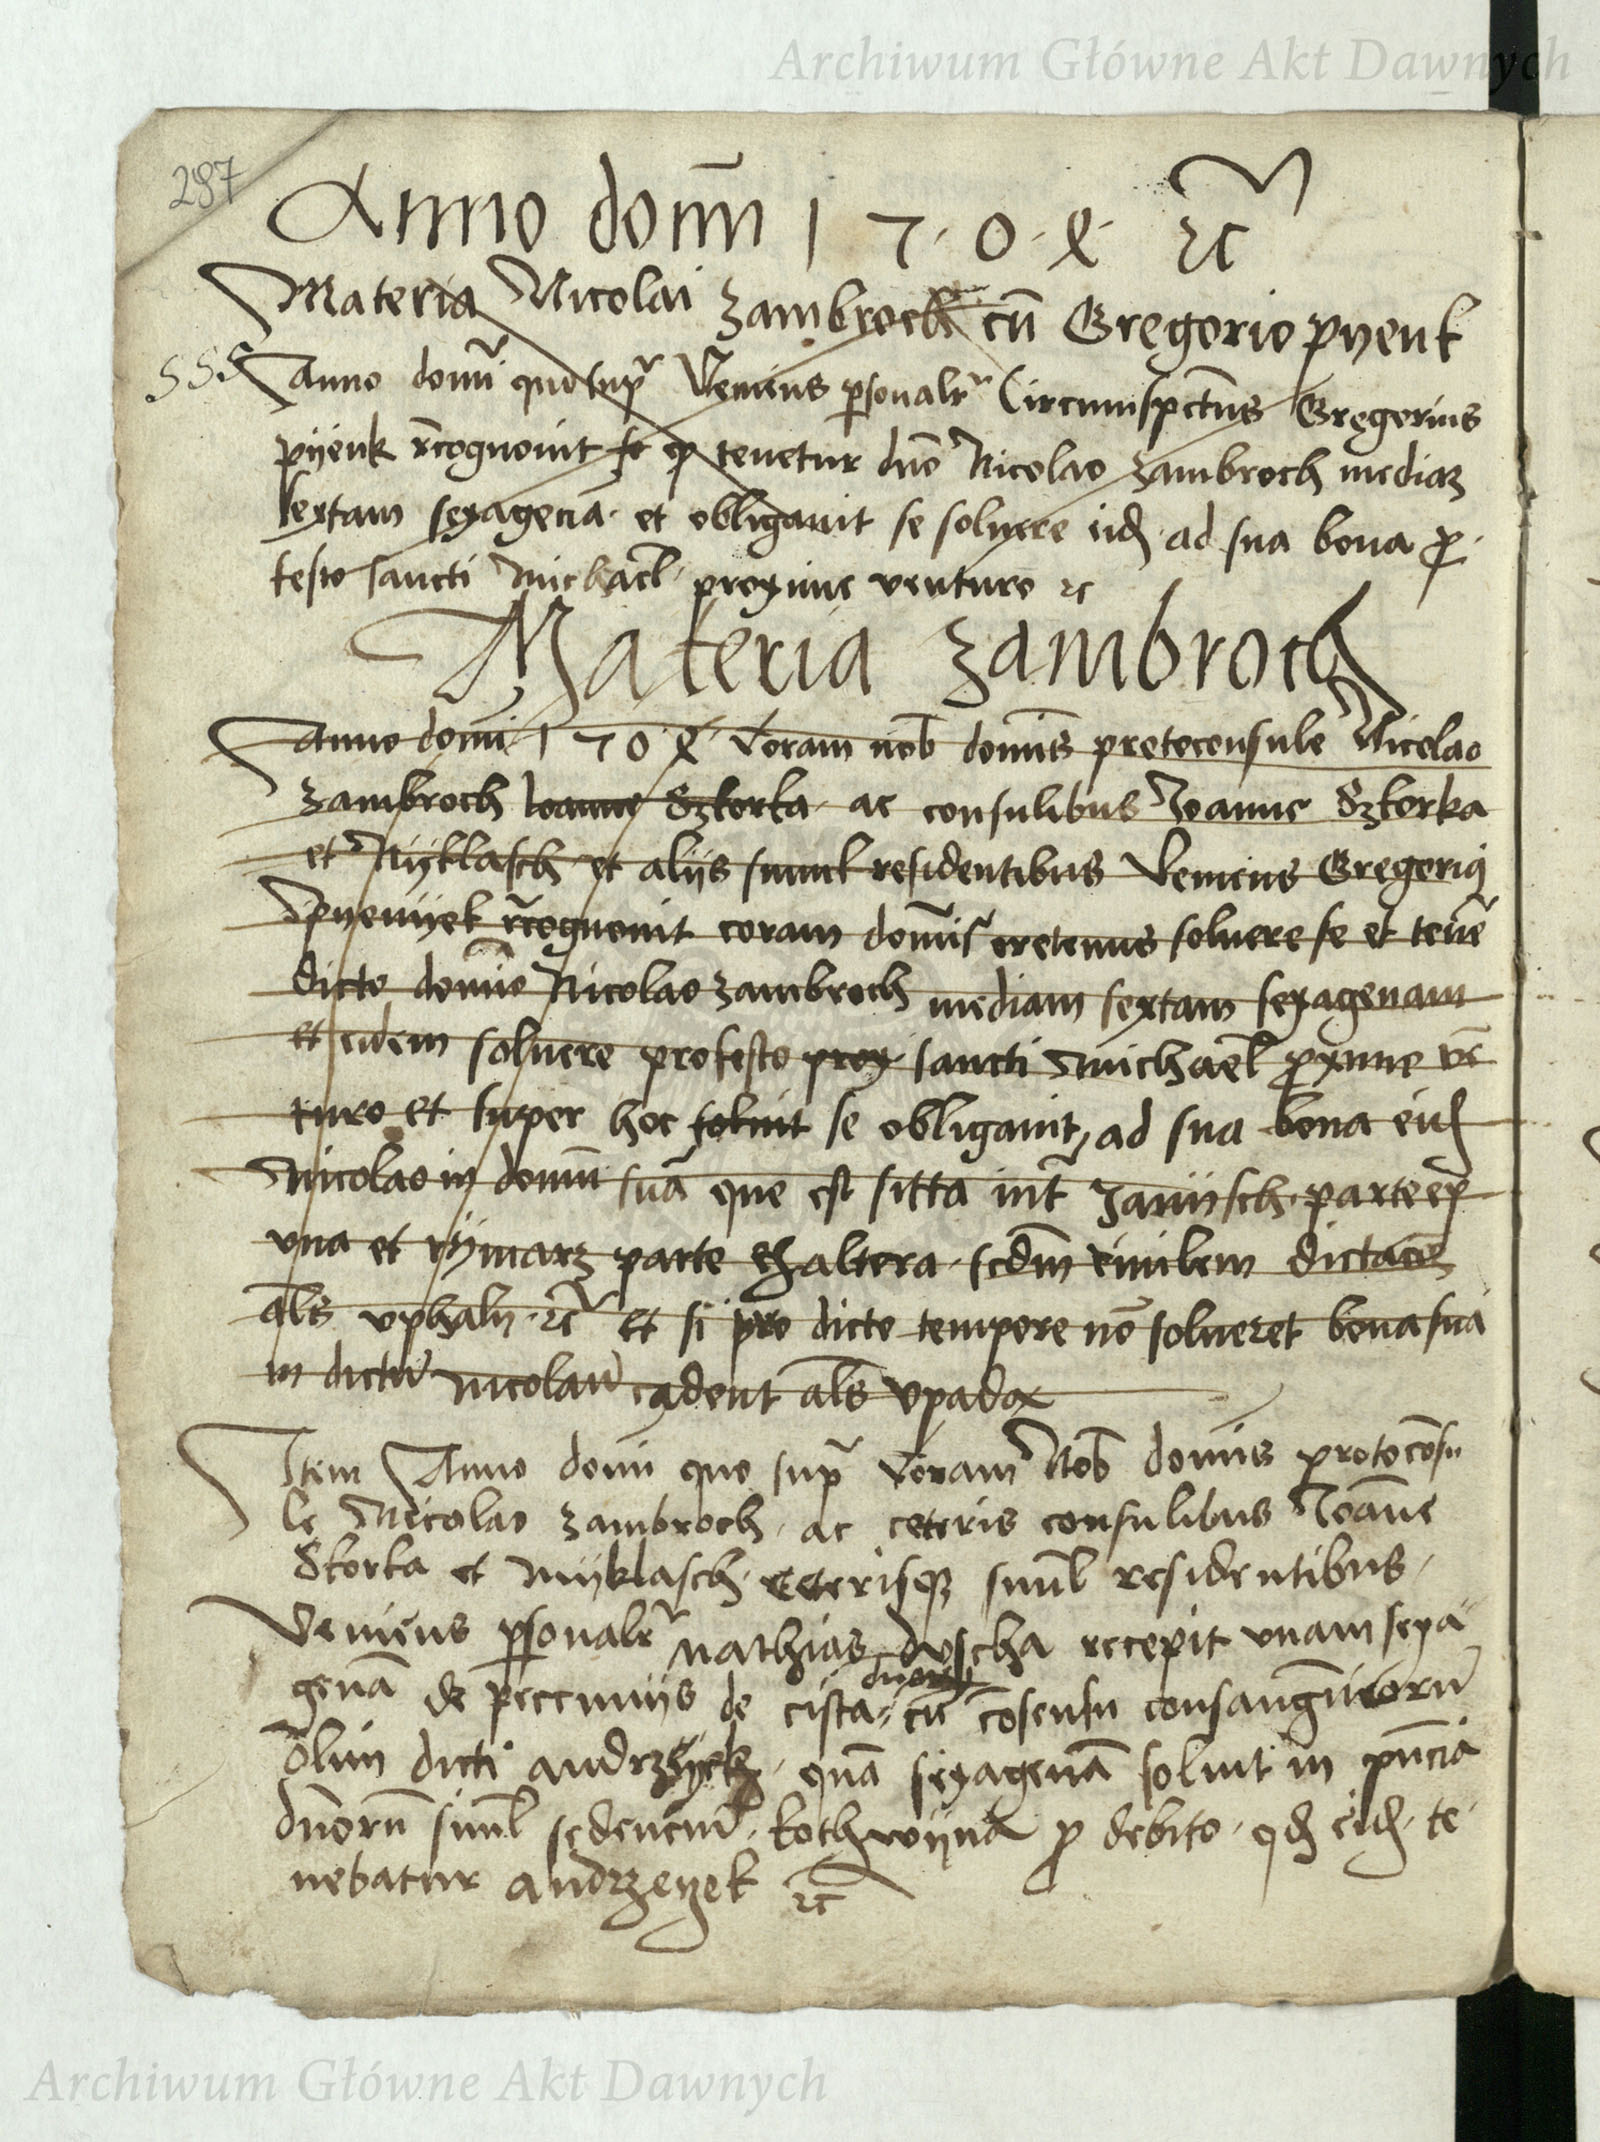 Archiwum Główne Akt Dawnych
287
Anno dom̄ 1 7 · 0 · 8 · ⁊c
Materia Nicolai Zambroch cū Gregorio pyenk
Anno domī quo supr̄ Veniens psonalr̄ Circumspctus Gregorius
pyenk rēcognouit se q tenetur dno Nicolao Zambroch mediaz
sextam sexagenā et obligauit se soluere eid ad sua bona p
festo sancti Michael proxime venturo ⁊c
Materia Zambroch
Anno domī 1 7 0 8 Coram nob domīs protoconsule Nicolao
Zambroch Ioanne Sztorka ac consulibus Joanne Sztorka
et Nyklasch et alijs simul residentibus Veniens Gregeriq
pyenijek rēcognouit coram domīs oretenus soluere se et tenē
dicto domīo Nicolao Zambroch mediam sextam sexagenam
et eidem soluere profesto prox sancti Michael pxime vē
turo et super hoc soluit se obligauit, ad sua bona eid
Nicolao in domū suā que est sitta int̄ Janijsch parte ex
vna et rymarz parte ex altera scdm ciuilem
als vphaly ⁊c Et si pro dicto tempore nō solueret bona sua
in dictū Nicolaū cadent als vpadox
Item Anno domī quo supr̄ Coram Nob domīs protocōsu
le Nicolao Zambroch ac ceteris consulibus Joāne
Storka et Myklasch ceterisqz simul residentibus
Veniens psonalr̄ Mathias duscha recepit vnam sexa
genā de peccunijs de cista cū cōsensu consangū̄ieorū
Olim dicti andrzeyek quā sexagenā soluit in pn̄cia
dnorū siml sedenciū kothwyna p debito qd eid te
nebatur andrzeyek ⁊c
Archiwum Główne Akt Dawnych